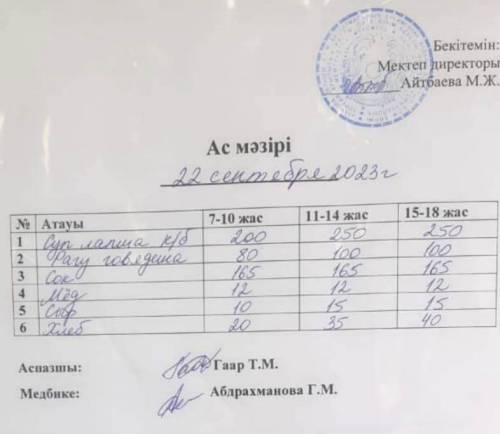 Бекітемін:
Мектеп директоры
Айтбаева М.Ж.
Ас мәзірі
22 сентября 2023г
№ Атауы 7-10 жас 11-14 жас 15-18 жас
1 Суп лапша к/б 200 250 250
2 Рагу говядина 80 100 100
3 Сок 165 165 165
4 Мёд 12 12 12
5 Сыр 10 15 15
6 Хлеб 20 35 40
Аспазшы: Гаар Т.М.
Медбике: Абдрахманова Г.М.